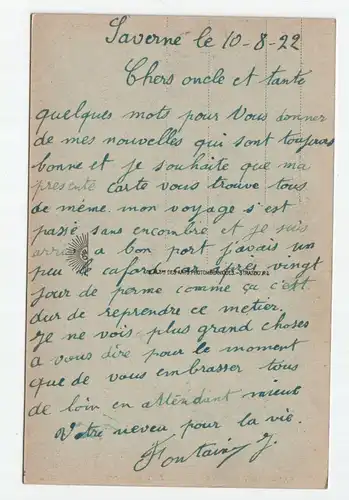 Saverne le 10-8-22
Chers oncle et tante
quelques mots pour vous donner
de mes nouvelles qui sont toujours
bonne et je souhaite que ma
presente carte vous trouve tous
de même. mon voyage s'est
passé sans encombre et je suis
arrivé a bon port javais un
peu le cafard car après vingt
jour de perme comme ça c'est
dur de reprendre ce metier.
Je ne vois plus grand choses
a vous dire pour le moment
que de vous embrasser tous
de loin en attendant mieux
Votre neveu pour la vie.
Fontaine J.